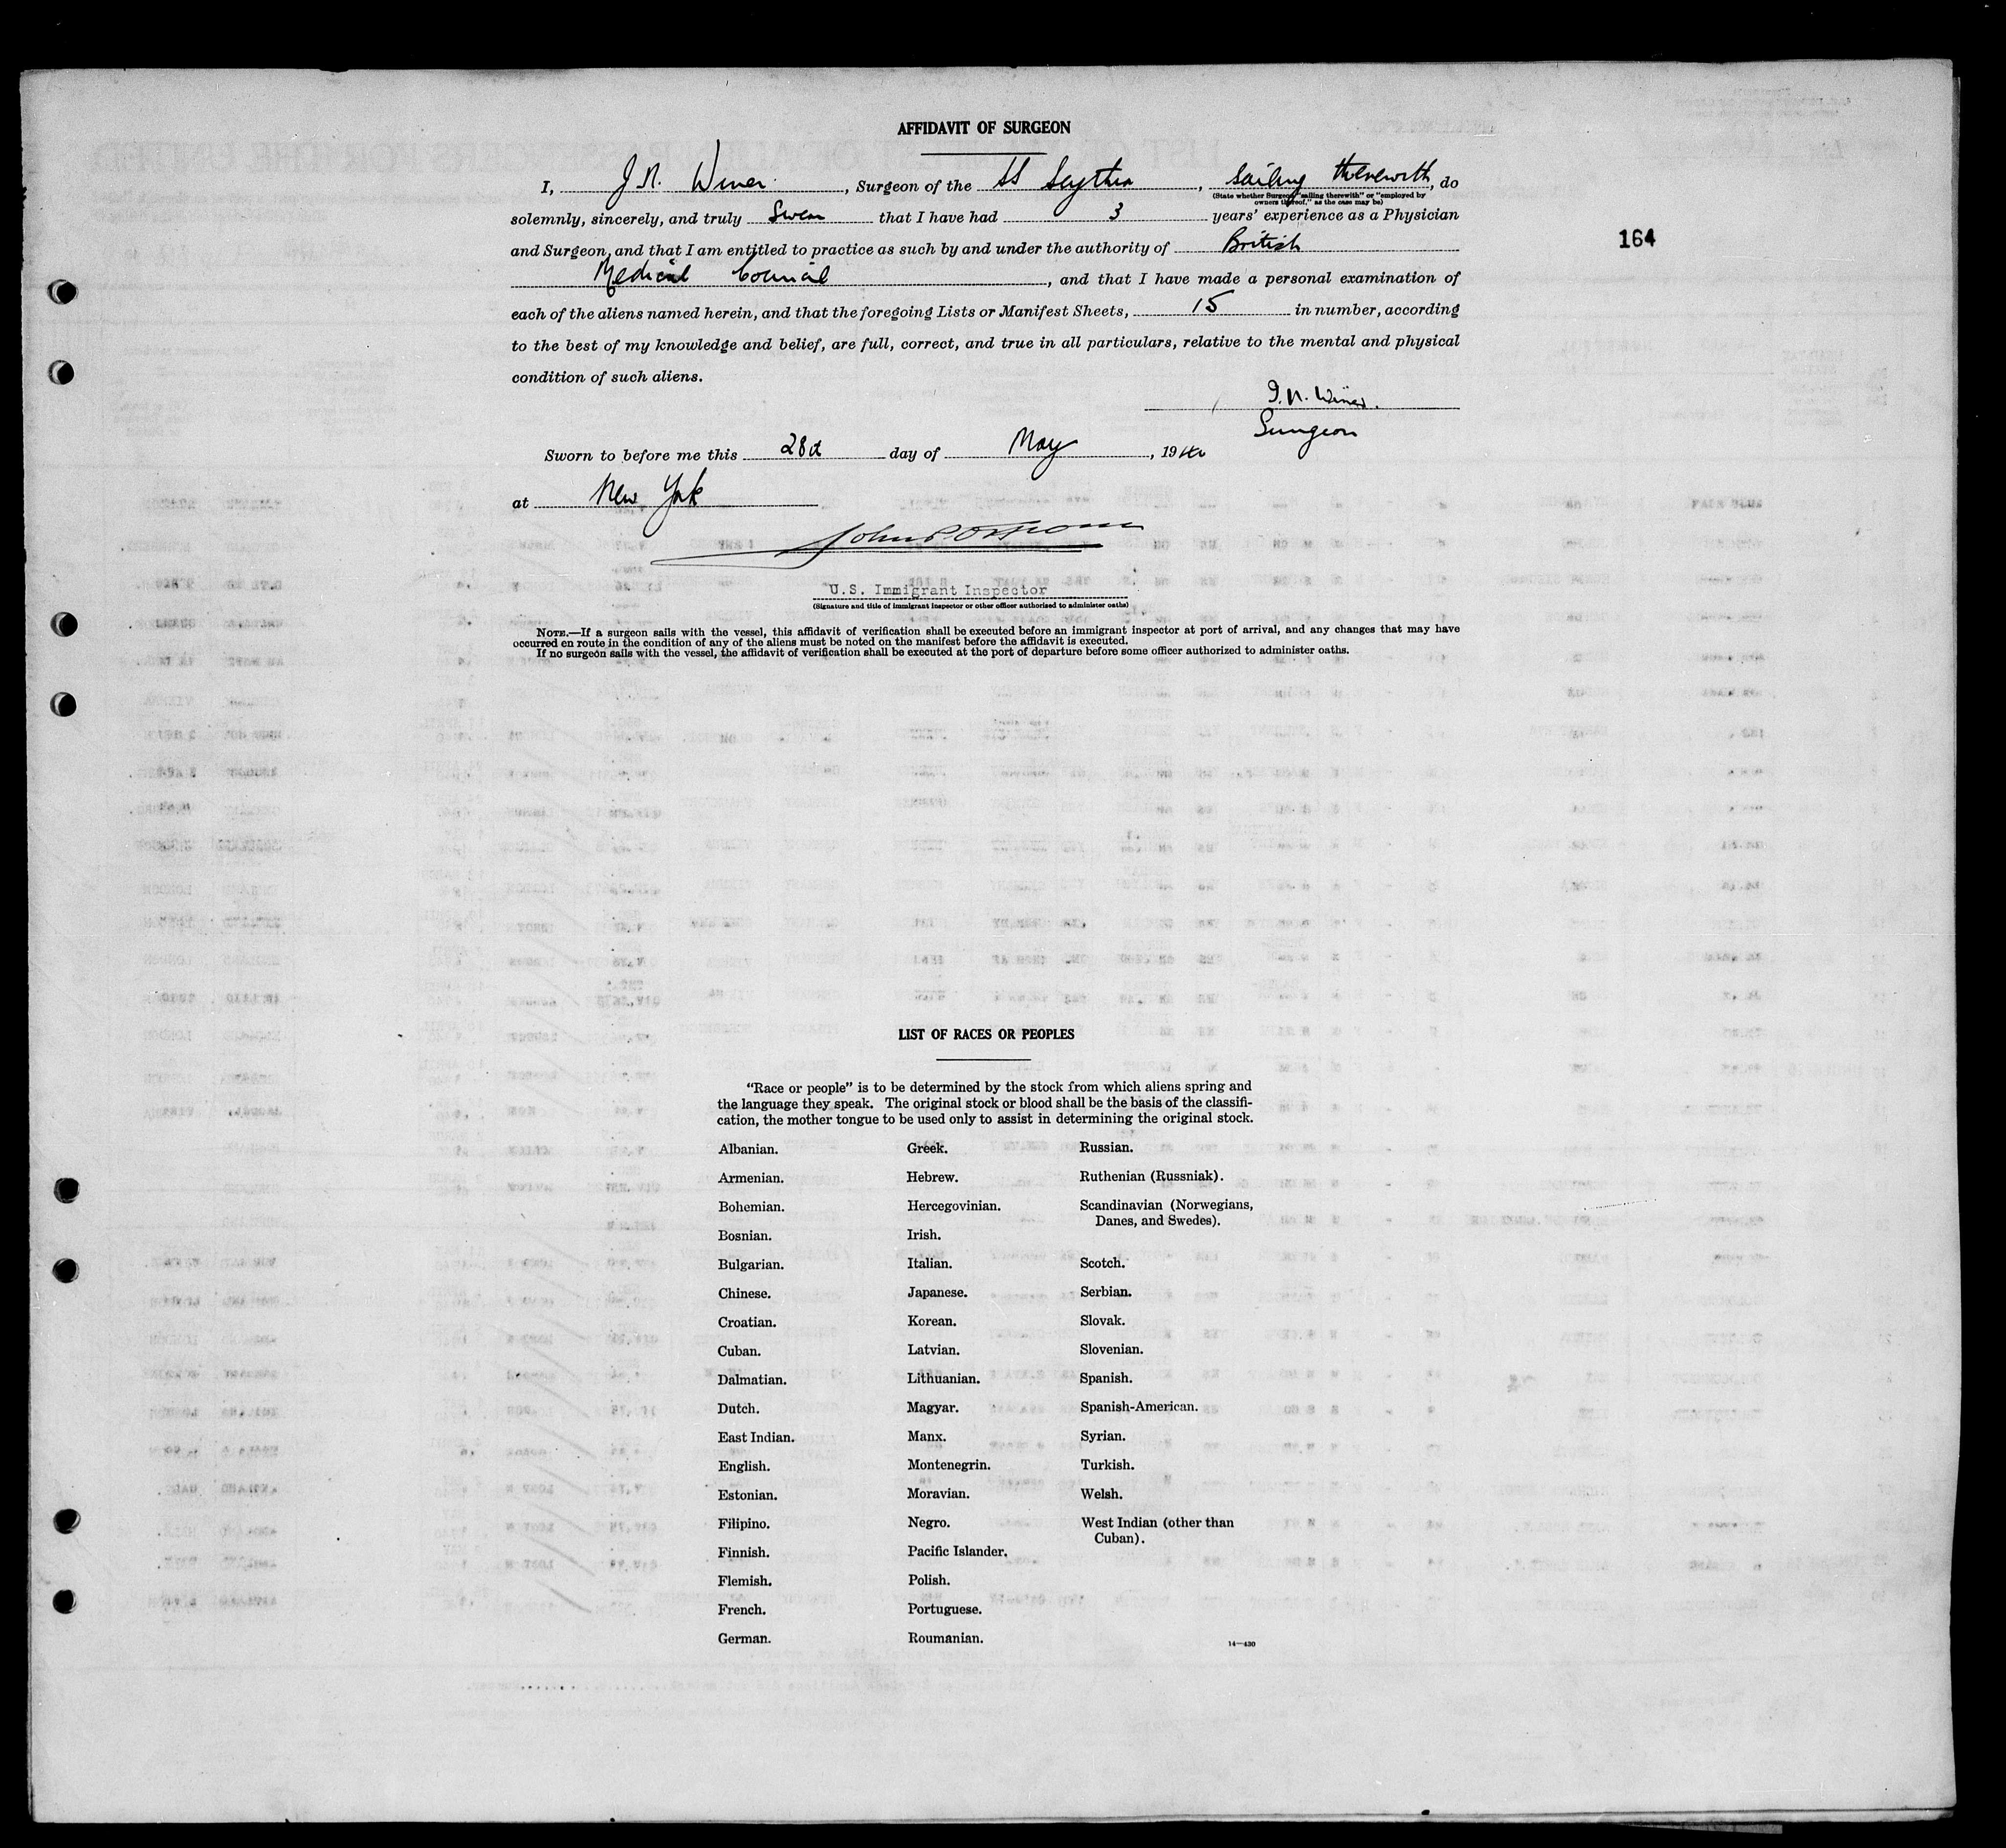 AFFIDAVIT OF SURGEON
I, J. N. Winer, Surgeon of the SS Scythia, sailing therewith, do
(State whether Surgeon "sailing therewith" or "employed by
owners thereof," as the case may be)
solemnly, sincerely, and truly Swear that I have had 3 years' experience as a Physician
164
and Surgeon, and that I am entitled to practice as such by and under the authority of British
Medical Council, and that I have made a personal examination of
each of the aliens named herein, and that the foregoing Lists or Manifest Sheets, 15 in number, according
to the best of my knowledge and belief, are full, correct, and true in all particulars, relative to the mental and physical
condition of such aliens.
J. N. Winer.
Surgeon
Sworn to before me this 28th day of May, 1940
at New York
U.S. Immigrant Inspector
(Signature and title of immigrant inspector or other officer authorized to administer oaths)
NOTE.—If a surgeon sails with the vessel, this affidavit of verification shall be executed before an immigrant inspector at port of arrival, and any changes that may have
occurred en route in the condition of any of the aliens must be noted on the manifest before the affidavit is executed.
If no surgeon sails with the vessel, the affidavit of verification shall be executed at the port of departure before some officer authorized to administer oaths.
LIST OF RACES OR PEOPLES
"Race or people" is to be determined by the stock from which aliens spring and
the language they speak. The original stock or blood shall be the basis of the classifi-
cation, the mother tongue to be used only to assist in determining the original stock.
Albanian.
Armenian.
Bohemian.
Bosnian.
Bulgarian.
Chinese.
Croatian.
Cuban.
Dalmatian.
Dutch.
East Indian.
English.
Estonian.
Filipino.
Finnish.
Flemish.
French.
German.
Greek.
Hebrew.
Hercegovinian.
Irish.
Italian.
Japanese.
Korean.
Latvian.
Lithuanian.
Magyar.
Manx.
Montenegrin.
Moravian.
Negro.
Pacific Islander.
Polish.
Portuguese.
Roumanian.
Russian.
Ruthenian (Russniak).
Scandinavian (Norwegians,
Danes, and Swedes).
Scotch.
Serbian.
Slovak.
Slovenian.
Spanish.
Spanish-American.
Syrian.
Turkish.
Welsh.
West Indian (other than
Cuban).
14—430